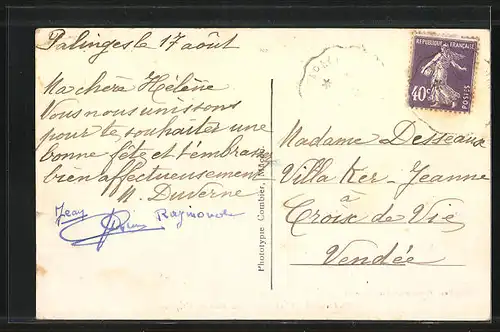 Palinges le 17 août
Ma chère Hélène
Vous nous unissons
pour te souhaiter une
bonne fête et t'embrasser
bien affectueusement
M. Duverne
Jean
Raymonde
Phototypie Combier, Mâcon
REPUBLIQUE FRANÇAISE
40c
POSTES
Madame Desseaux
Villa Ker-Jeanne
à
Croix de Vie
Vendée